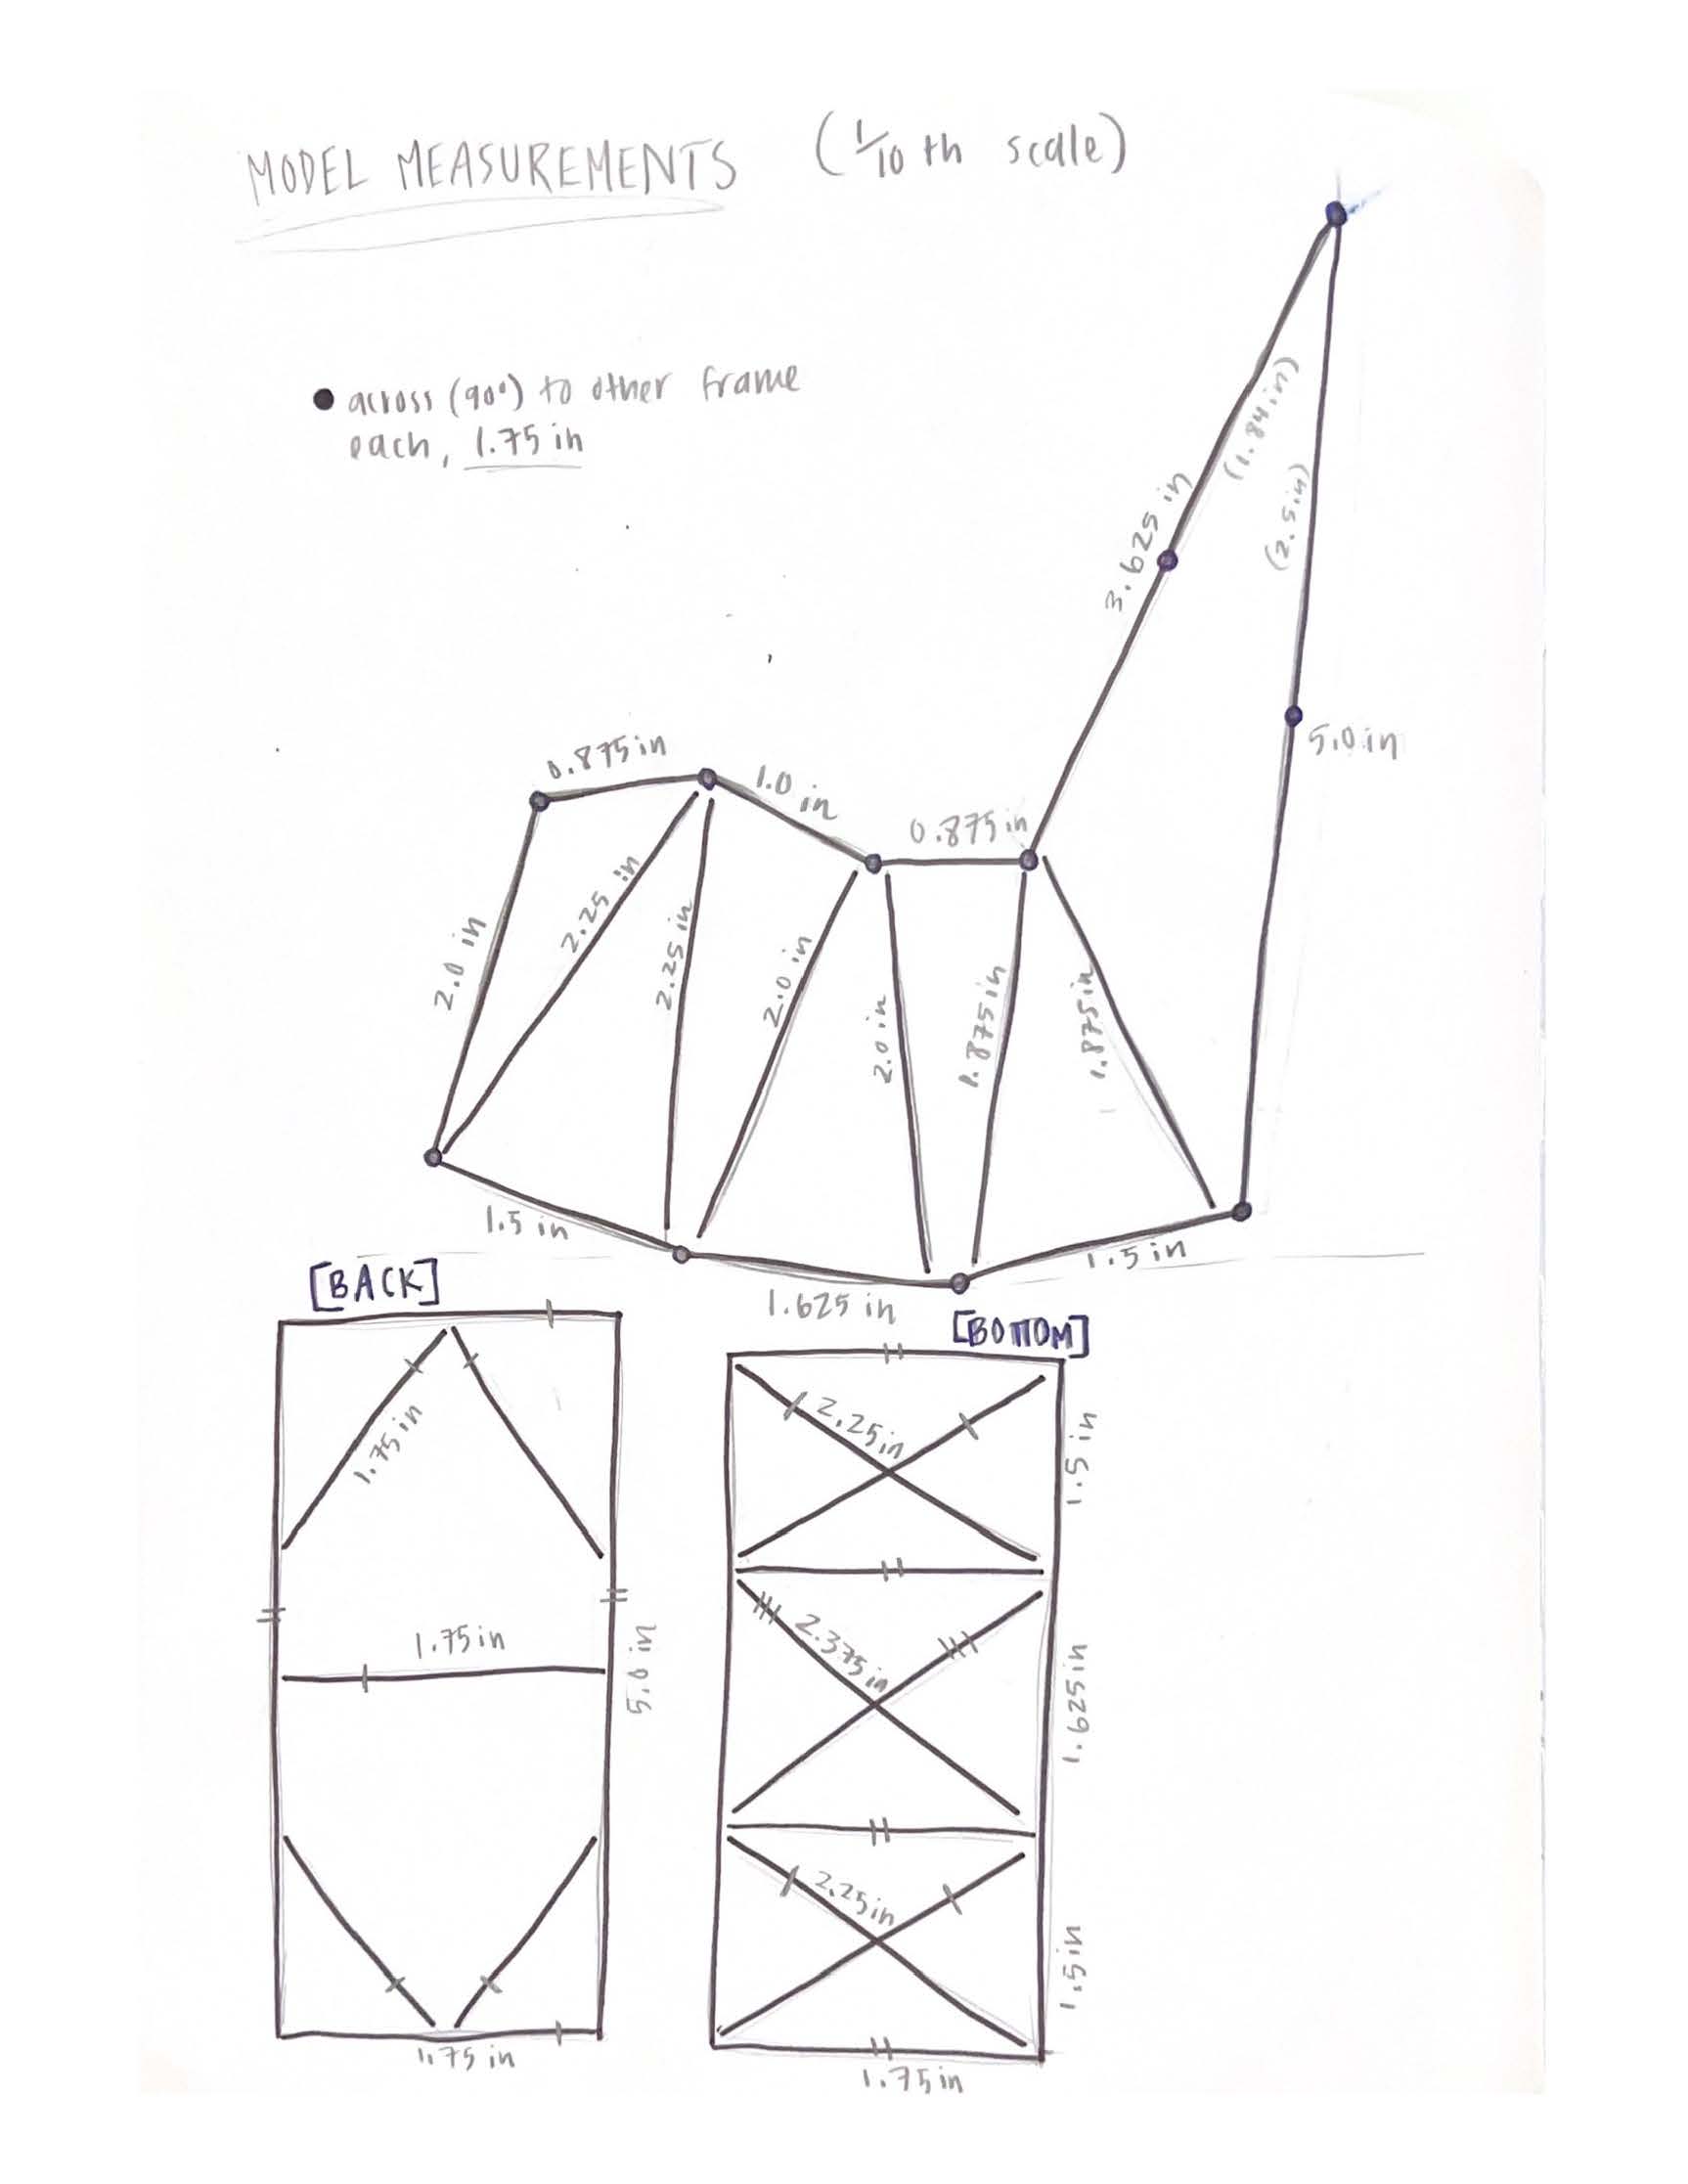 MODEL MEASUREMENTS (1/10 th scale)
● across (90°) to other frame
each, 1.75 in
(1.84 in)
3.625 in
(2.5 in)
5.0 in
0.875 in
1.0 in
0.875 in
2.0 in
2.25 in
2.25 in
2.0 in
2.0 in
1.875 in
1.875 in
1.5 in
1.625 in
1.5 in
[BACK]
1.75 in
1.75 in
5.0 in
1.75 in
[BOTTOM]
2.25 in
1.5 in
2.375 in
1.625 in
2.25 in
1.5 in
1.75 in